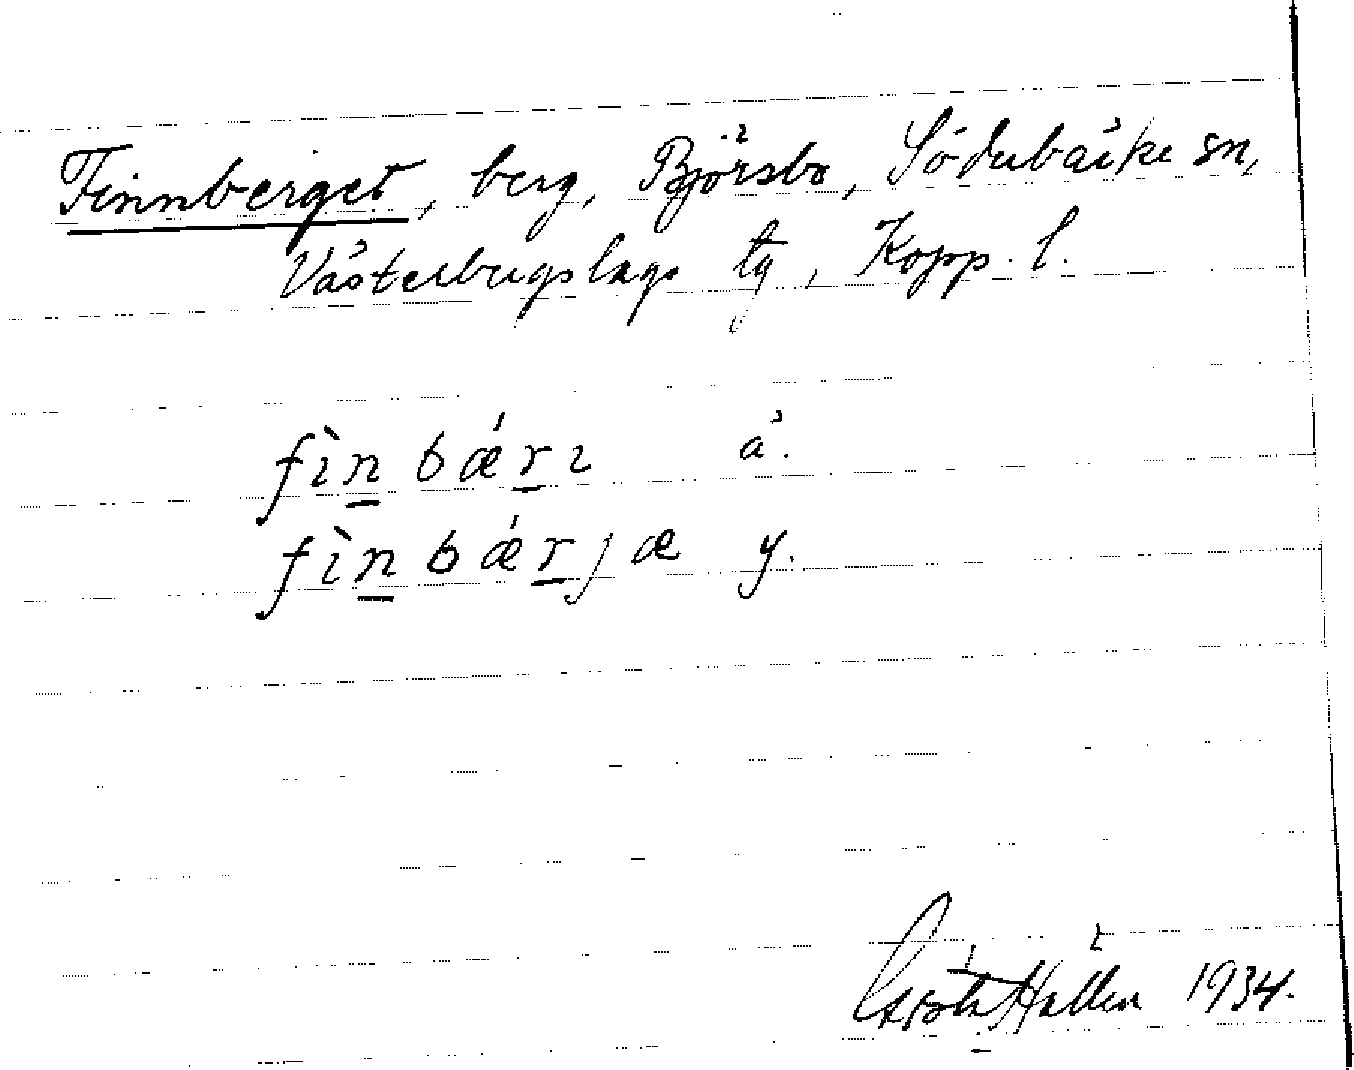 Finnberget, berg, Björsbo, Söderbärke sn,
Västerbergslags tg, Kopp. l.
fìn̲ bǽr̲ı ä.
fìn̲ bǽr̲jæ y.
Gösta Hallén 1934.